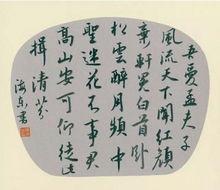 吾愛孟夫子
風流天下聞紅顏
棄軒冕白首卧
松雲醉月頻中
聖迷花不事君
高山安可仰徒此
揖清芬